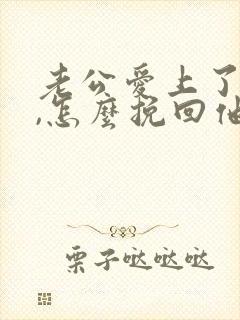 老公愛上了
,怎麼挽回他
栗子哒哒哒